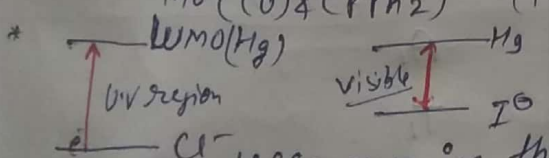 (CO)4(PPh2)
* LUMO(Hg) Hg
U.V region visible
I⊖
Cl⁻